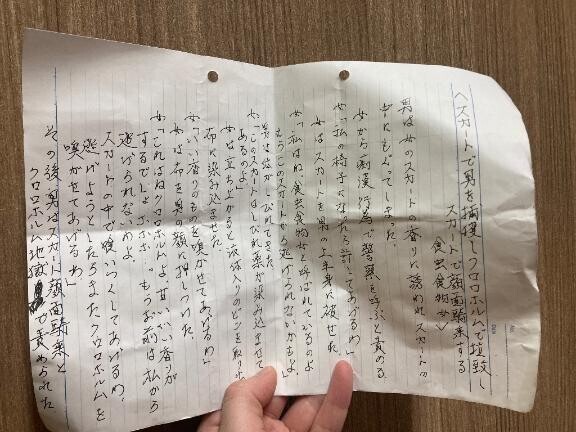 ＜スカートで男を捕獲しクロロホルムで拉致し
スカートで顔面騎乗する
食虫食物女＞
男は女のスカートの香りに誘われスカートの
中にもぐってしまった。
女から痴漢行為で警察を呼ぶと責める
女「私の椅子になったら許してあげるわ」
女はスカートを男の上半身に被せた。
女「私はね、食虫食物女と呼ばれているのよ
もうこのスカートから逃げられないかもよ」
男は体がしびれてきた。
女「このスカートはしびれ薬が染み込ませて
あるのよ」
女は立ち上がると液体入りのビンを取り
布に染み込ませた。
女「いい香りのものを嗅がせてあげるわ」
女は布を男の顔に押しつけた。
女「これはねクロロホルムよ甘い香りが
するでしょ もうお前は私から
逃げられないわよ。
スカートの中で飼いつくしてあげるわ、
逃げようとしたらまたクロロホルムを
嗅がせてあげるわ」
その後、男はスカート顔面騎乗と
クロロホルム地獄で責められた